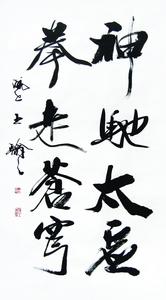 神馳太虛
拳走蒼穹